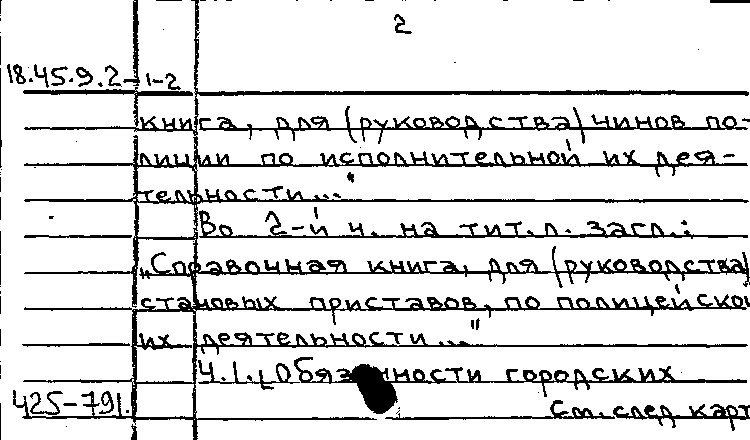 2
18.45.9.2-1-2
книга, для (руководства) чинов по-
лиции по исполнительной их дея-
тельности..."
Во 2-й ч. на тит.л. загл.:
„Справочная книга, для (руководства)
становых приставов, по полицейской
их деятельности..."
Ч.1. [Обязанности городских
425-791.
См. след. карт